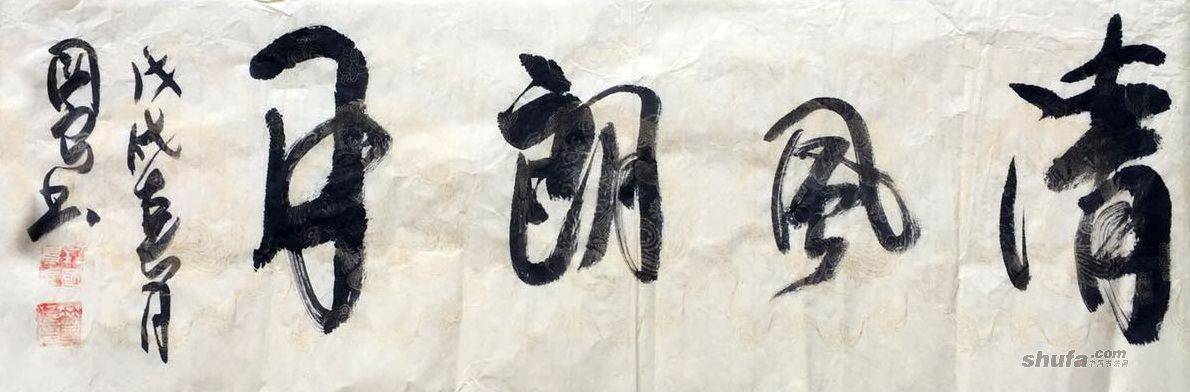 清風朗月
戊戌 月
國 书
shufa.com